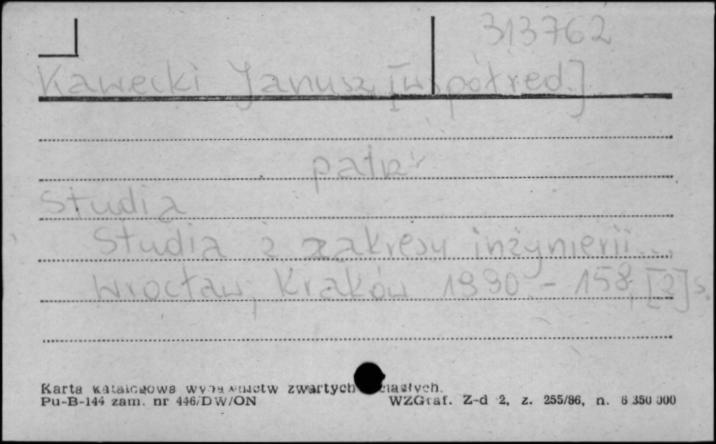 313762
Kawecki Janusz [współred.]
patrz
Studia
Studia z zakresu inżynierii...
Wrocław, Kraków 1990 - 158, [2] s.
Karta katalogowa wydawnictw zwartych ciągłych.
Pu-B-144 zam. nr 446/DW/ON WZGraf. Z-d 2, z. 255/86, n. 6 350 000